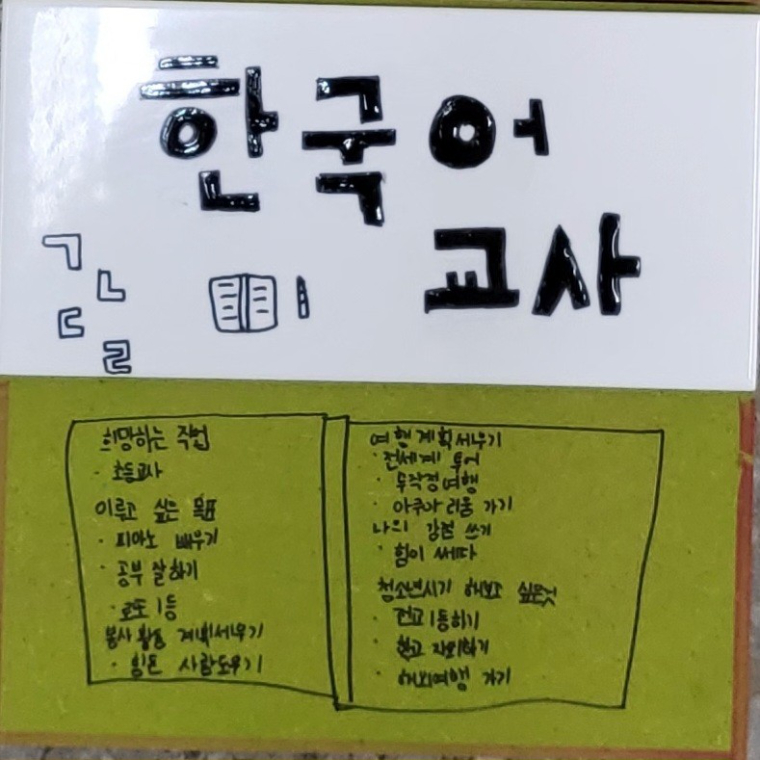 한국어
교사
ㄱ
ㄴ
ㄷ
ㄹ
희망하는 직업
· 초등교사
이루고 싶은 목표
· 피아노 배우기
· 공부 잘하기
· 로또 1등
봉사 활동 계획세우기
· 힘든 사람도우기
여행계획세우기
· 전세계 투어
· 무작정여행
· 아쿠아리움 가기
나의 강점 쓰기
· 힘이 쎄따
청소년시기 해보고 싶은것
· 전교1등하기
· 학교 자퇴하기
· 해외여행 가기